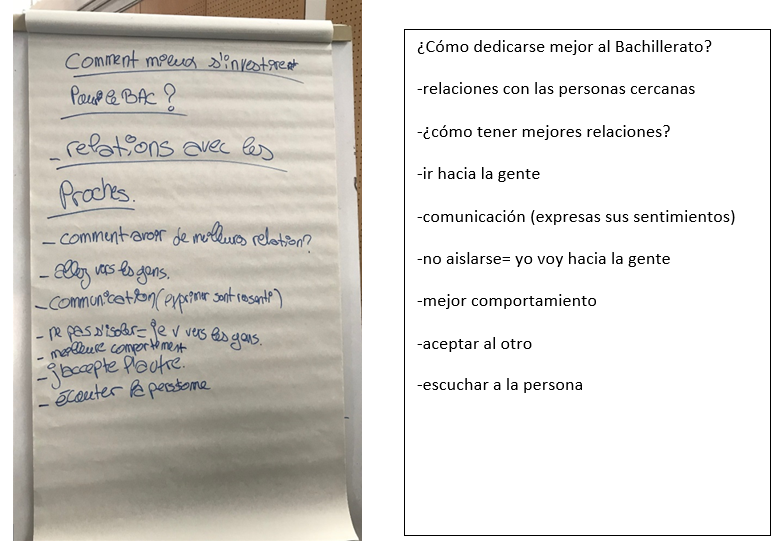 Comment mieux s'investirent
Pour le BAC ?
- relations avec les
Proches.
- comment avoir de meilleures relation?
- allez vers les gens.
- communication (exprimer sont ressenti)
- ne pas s'isoler = je v vers les gens.
- meilleure comportement
- j'accepte l'autre.
- écouter la personne
¿Cómo dedicarse mejor al Bachillerato?
-relaciones con las personas cercanas
-¿cómo tener mejores relaciones?
-ir hacia la gente
-comunicación (expresas sus sentimientos)
-no aislarse= yo voy hacia la gente
-mejor comportamiento
-aceptar al otro
-escuchar a la persona